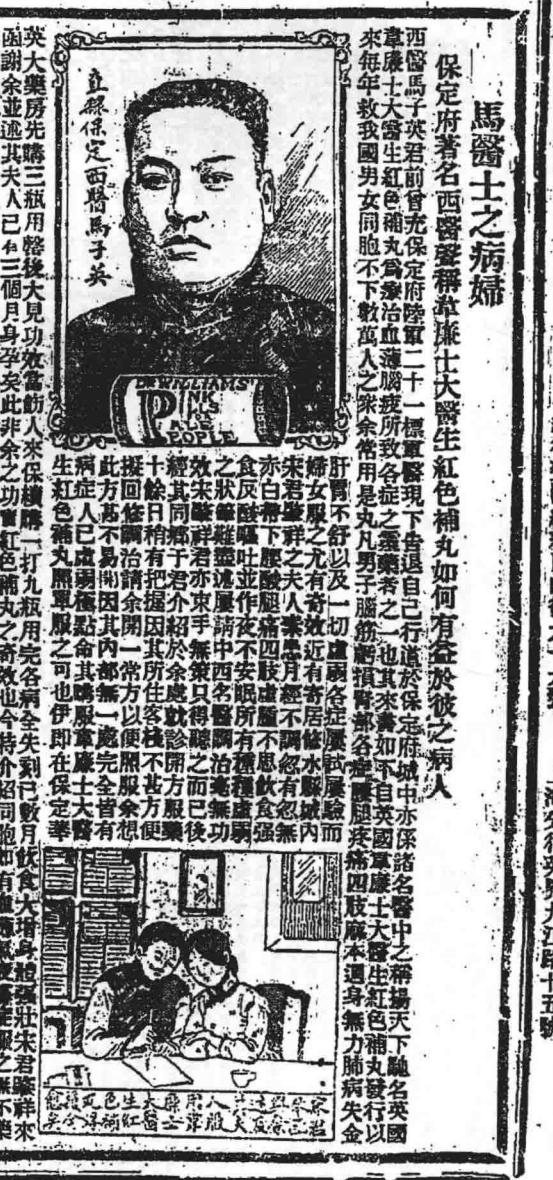 馬醫士之病婦
保定府著名西醫聲稱韋廉士大醫生紅色補丸如何有益於彼之病人
西醫馬子英君前曾充保定府陸軍二十一標軍醫現下告退自己行道於保定府城中亦係諸名醫中之稱揚天下馳名英國
韋廉士大醫生紅色補丸為療治血薄腦疲所致各症之靈藥者之一也其來書如下自英國韋廉士大醫生紅色補丸發行以
來每年救我國男女同胞不下數萬人之眾余常用是丸凡男子腦筋虧損腎部各症腰腿疼痛四肢麻木週身無力肺病失血
肝胃不舒以及一切虛弱各症屢試屢驗而
婦女服之尤有奇效近有寄居修水縣城內
宋君鑒祥之夫人患月經不調忽有忽無
赤白帶下腰酸腿痛四肢虛腫不思飲食强
食反酸嘔吐並作夜不安眠所有種種虛弱
之狀筆難盡述屢請中西名醫調治毫無功
效宋鑒祥君亦束手無策只得聽之而已後
經其同鄉于君介紹於余處就診開方服藥
十餘日稍有把握因其所住客棧不甚方便
擬回修調治請余開一常方以便照服余想
此方甚不易開因其內部無一處完全皆有
病症人已虛弱極點命其購服韋廉士大醫
生紅色補丸照單服之可也伊即在保定華
英大藥房先購三瓶用罄後大見功效當飭人來保續購一打九瓶用完各病全失刻已數月飲食大增身體强壯宋君鑒祥來
函謝余並述其夫人已有三個月身孕矣此非余之功實紅色補丸之奇效也今特介紹同胞如有
直隸保定西醫馬子英
DR WILLIAMS'
PINK
PILLS
FOR
PALE
PEOPLE